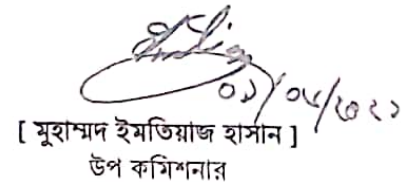 ০১/০৮/২০২১
[ মুহাম্মদ ইমতিয়াজ হাসান ]
উপ কমিশনার